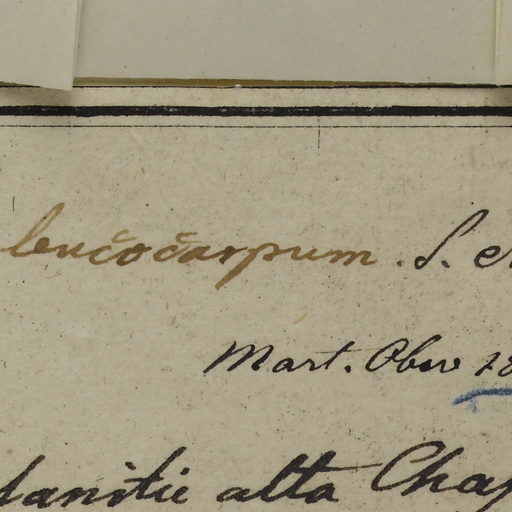 leucocarpum. S. e
Mart. Obs. 18
planitie alta Chap